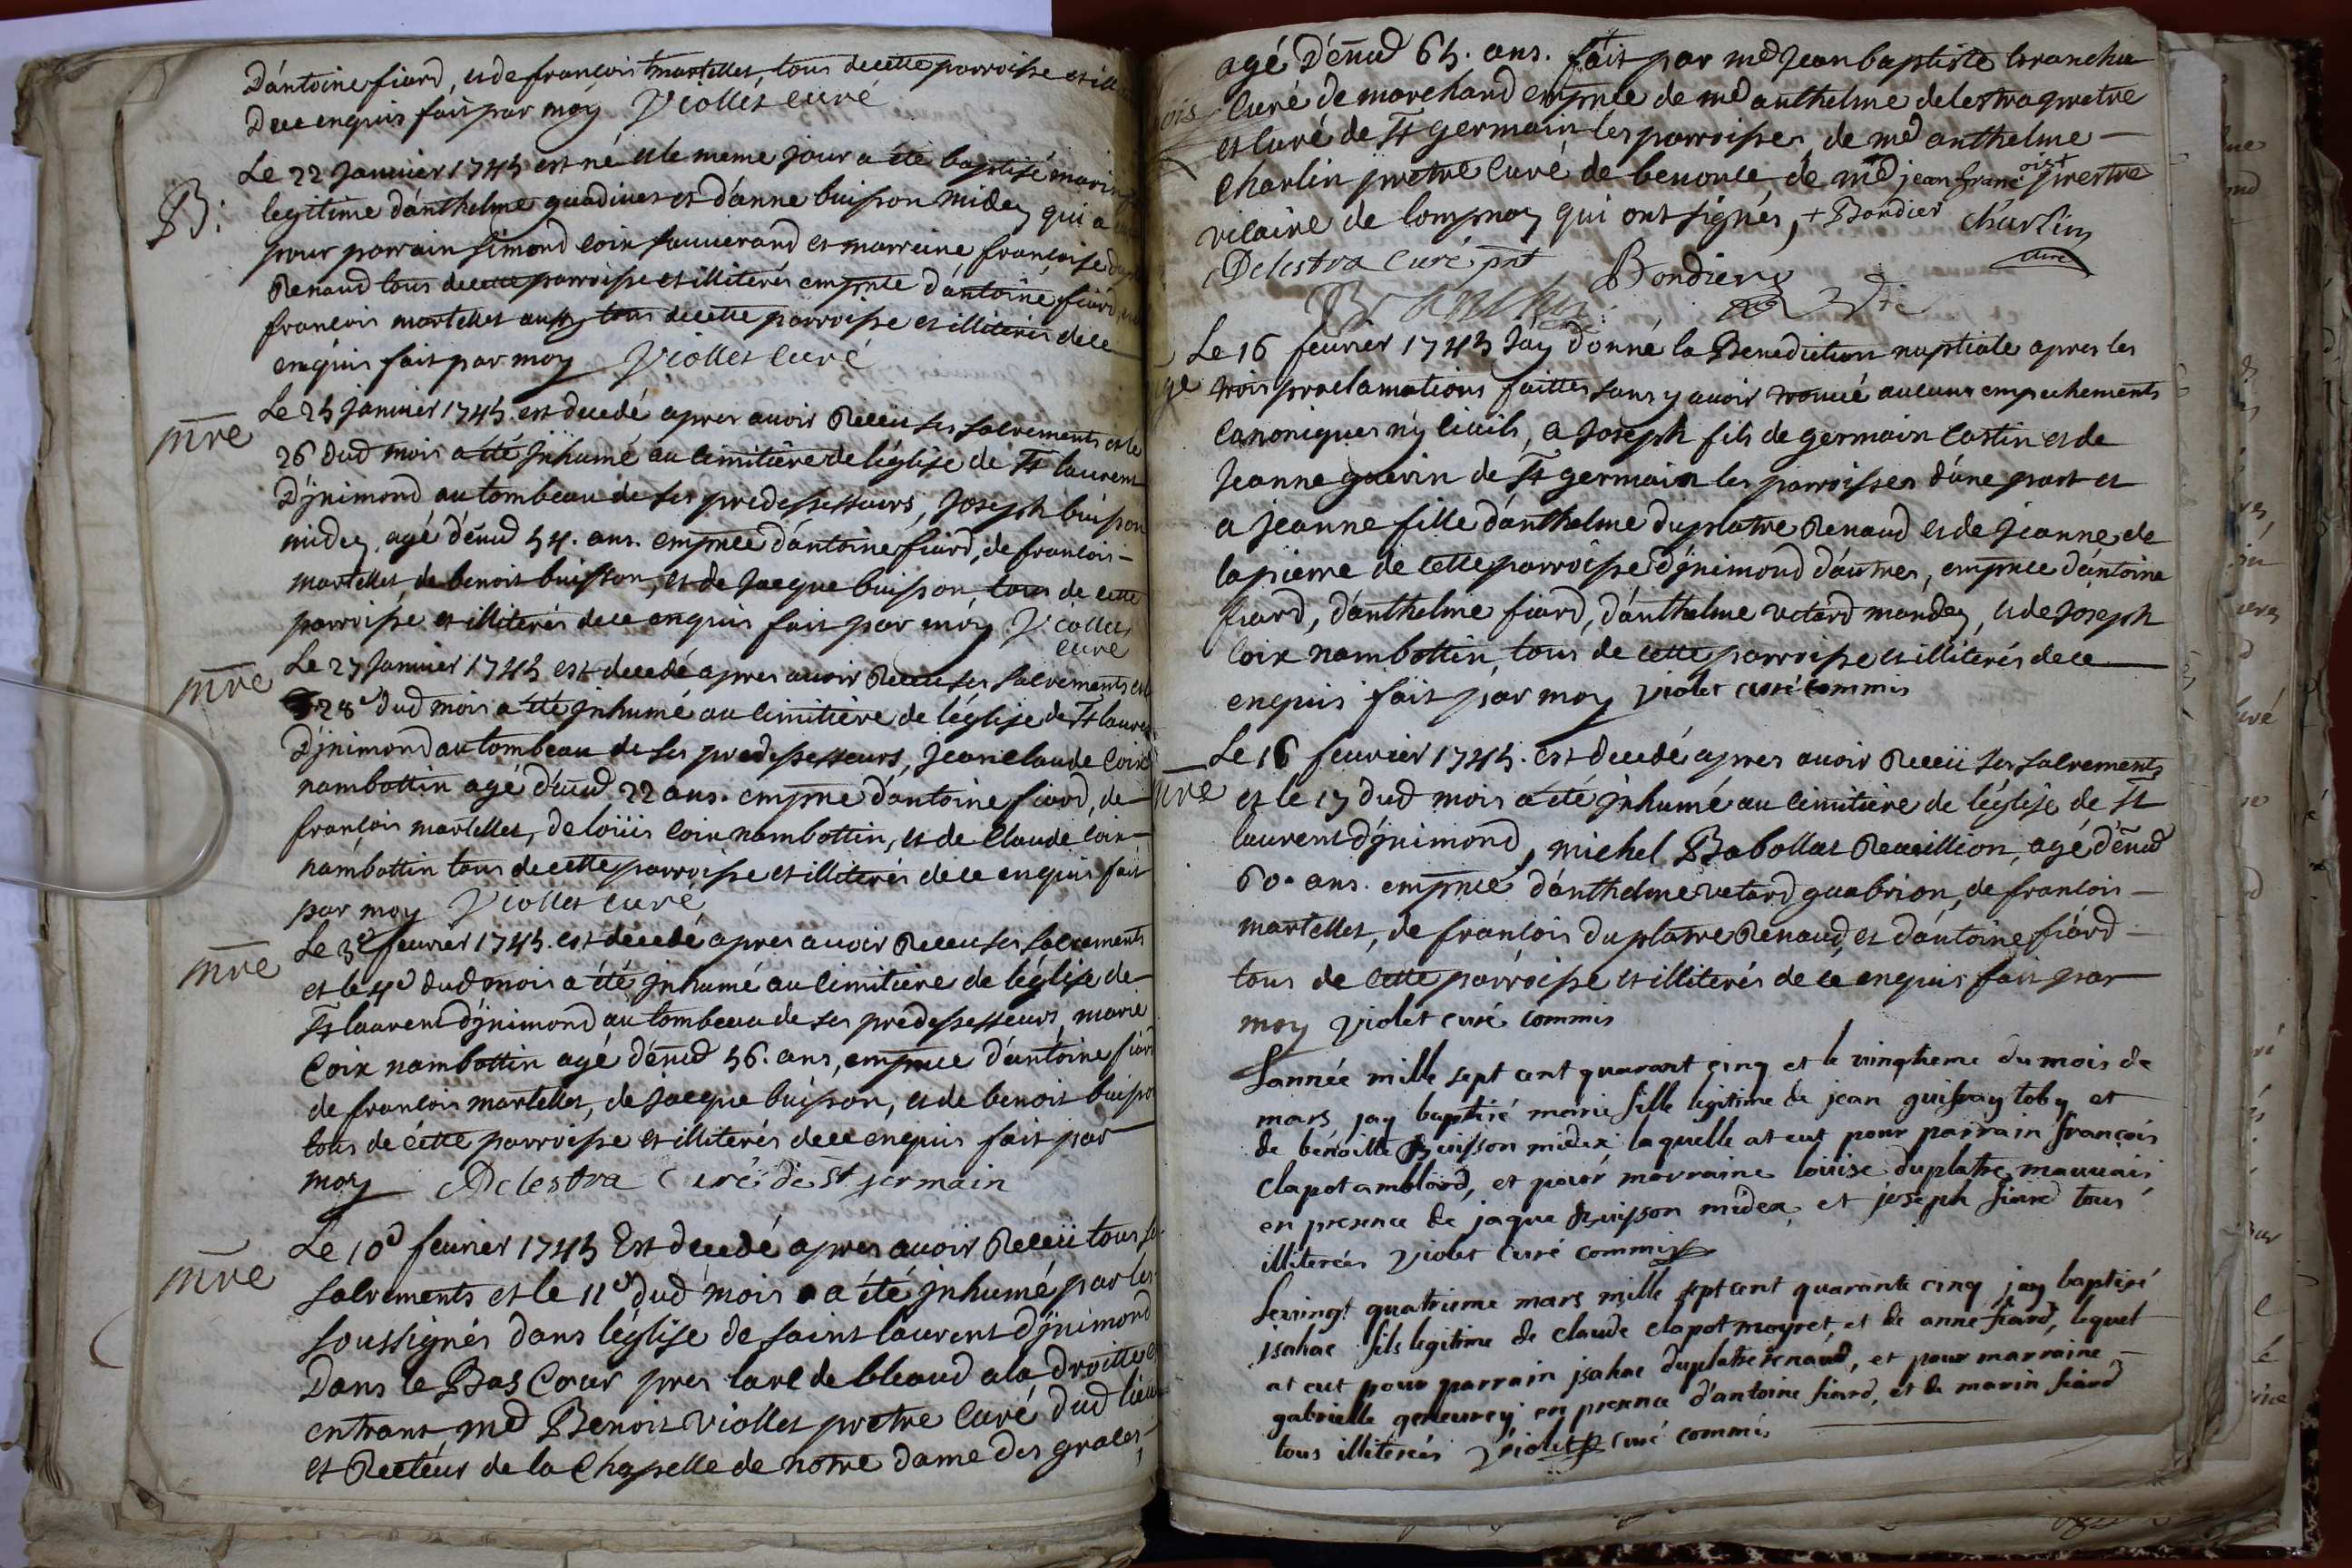 D'antoine fiard, et de francois martellet, tous de cette parroisse et ill
De ce enquis fait par moy Viollet curé
B:
Le 22 Janvier 1745 est né et le meme jour a été baptisé marin
legitime d'anthelme guadinet et d'anne buisson midey qui a
pour parrain simond coix sauverand et marraine francoise
Renaud tous de cette parroisse et illiterés empnce d'antoine fiard,
francois martellet aussy tous de cette parroisse et illiterés de ce
enquis fait par moy Viollet curé
mre
Le 25 Janvier 1745. est decedé apres avoir Receu ses sacrements et le
26 dud mois a été jnhumé au cimitière de léglise de St laurent
D'jnimond au tombeau de ses predessesseurs, Joseph buisson
midey, agé d'énvd 54. ans. empnce d'antoine fiard, de francois
martellet, de benoit buisson, et de Jacque buisson, tous de cette
parroisse et illiterés de ce enquis fait par moy Viollet
curé
mre
Le 27 Janvier 1745 est decedé apres avoir Receu ses sacrements et
28e dud mois a été jnhumé au cimitière de léglise de St lauren
D'jnimond au tombeau de ses predessesseurs, Jean claude Coix
nambottin agé d'énvd 22 ans. empnce d'antoine fiard, de
francois martellet, de loüis coix nambottin, et de Claude coix
nambottin tous de cette parroisse et illiterés de ce enquis fait
par moy Viollet curé
mre
Le 3e fevrier 1745. est decedé apres avoir Receu ses sacrements
et le 4e dud mois a été jnhumé au cimitière de léglise de
St laurent d'jnimond au tombeau de ses predessesseurs, marie
Coix nambottin agé d'énvd 56. ans, empnce d'antoine fiard
de francois martellet, de Jacque buisson, et de benoit buisso
tous de cette parroisse et illiterés de ce enquis fait par
moy Delestra Curé de St germain
mre
Le 10e fevrier 1745 Est decedé apres avoir Receü tous
sacrements et le 11e dud mois a été jnhumé par les
soussignés dans léglise de saint laurent d'jnimond
Dans le Bas Cœur pres larc de bleaud a la droitte
entrant mre Benoit Viollet pretre Curé dud lieu
et Recteur de la Chapelle de notre dame des graces,
agé D'énvd 65. ans. fait par mre Jean baptiste branche
Curé de marchand empnce de mre anthelme delestra pretre
et curé de St germain les parroisses, de mre anthelme
Charlin pretre curé de benonce, de mre jean francoist prestre
vicaire de lompnay qui ont signés, + Bondier Charlin
Delestra curé pnt Bondier curé
Le 16 fevrier 1745 J'ay donné la Benediction nuptiale apres les
trois proclamations faittes sans y avoir trouvé aucuns empechements
Canoniques n'y civils, a Joseph fils de germain Castin et de
Jeanne guerin de St germain les parroisses d'une part et
a jeanne fille d'anthelme duplatre Renaud et de Jeanne de
lapierre de cette parroisse d'jnimond d'autres, empnce d'antoine
fiard, d'anthelme fiard, d'anthelme vetard mandey, et de Joseph
Coix nambottin, tous de cette parroisse et illiterés de ce
enquis fait par moy violet curé commis
Le 16 fevrier 1745. est decedé apres avoir Receü ses sacrements
et le 17 dud mois a été jnhumé au cimitière de léglise de St
laurent d'jnimond, michel Babollat Reveillion, agé d'énvd
60. ans. empnce d'anthelme vetard guabrion, de francois
martellet, de francois duplatre Renaud, et d'antoine fiard
tous de cette parroisse et illiterés de ce enquis fait par
moy violet curé commis
L'année mille sept cent quarant cinq et le vingtieme du mois de
mars jay baptisé marie fille legitime de jean guifray toby et
de benoitte Buisson midex, laquelle at eut pour parrain françois
clapot amblard, et pour marraine loüise duplatre mauvais
en presence de jaque Buisson midex, et joseph fiard tous
illiterés violet curé commis
Le vingt quatrieme mars mille sept cent quarante cinq jay baptisé
jsahac fils legitime de claude clapot moyret, et de anne fiard, lequel
at eut pour parrain jsahac duplatre renaud, et pour marraine
gabrielle geneurey en presence d'antoine fiard, et de marin fiard
tous illiterés violet curé commis